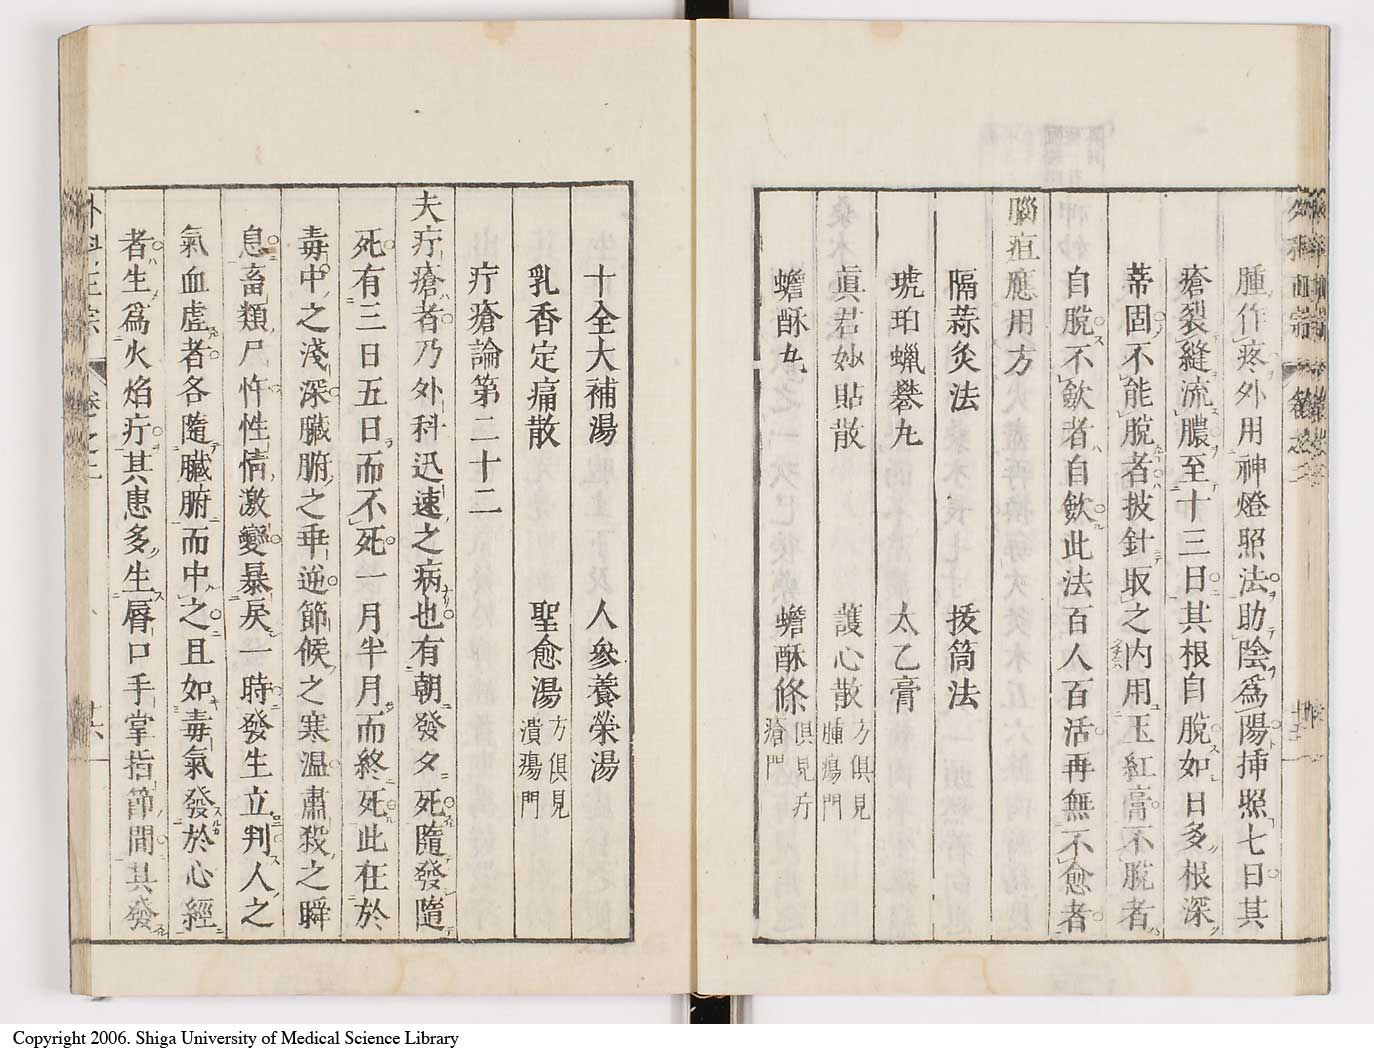 腫作疼外用神燈照法助陰爲陽揷照七日其
瘡裂縫流膿至十三日其根自脫如日多根深
蒂固不能脫者披針取之内用玉紅膏不脫者
自脫不斂者自斂此法百人百活再無不愈者
腦疽應用方
隔蒜灸法　拔筒法
琥珀蠟礬丸　太乙膏
眞君妙貼散　護心散 方俱見腫瘍門
蟾酥丸　蟾酥條 俱見疔瘡門
十全大補湯　人參養榮湯
乳香定痛散　聖愈湯 方俱見潰瘍門
疔瘡論第二十二
夫疔瘡者乃外科迅速之病也有朝發夕死隨發隨
死有三日五日而不死一月半月而終死此在於
毒中之淺深臟腑之乖逆節候之寒温肅殺之瞬
息畜類尸忤性情激變暴戾一時發生立判人之
氣血虛者各隨臟腑而中之且如毒氣發於心經
者生爲火焰疔其患多生唇口手掌指節間其發
外科正宗 卷之二 廿六
Copyright 2006. Shiga University of Medical Science Library